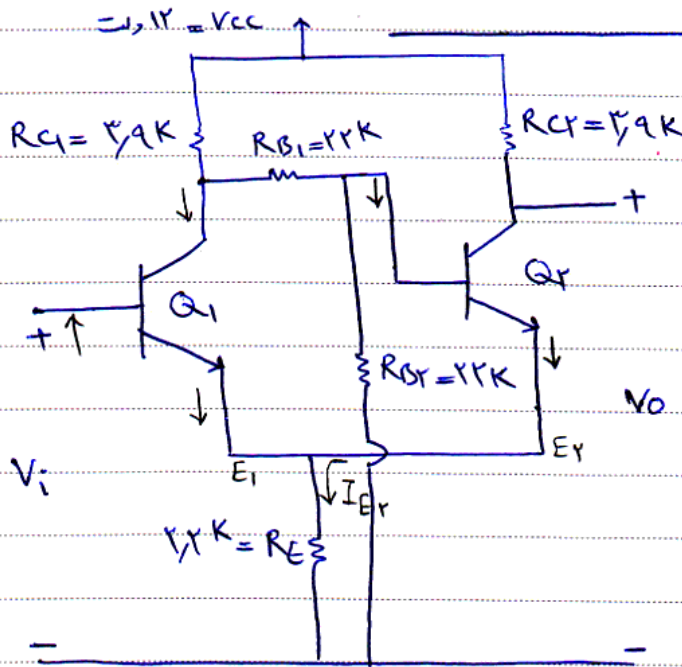 ولت ۱۲ = Vcc
RC۱ = ۳,۹K
RB۱ = ۲۲K
RC۲ = ۳,۹K
+
Q۱
Q۲
+
RB۲ = ۲۲K
Vo
E۱
E۲
Vi
IE۲
۲,۲K = RE
-
-